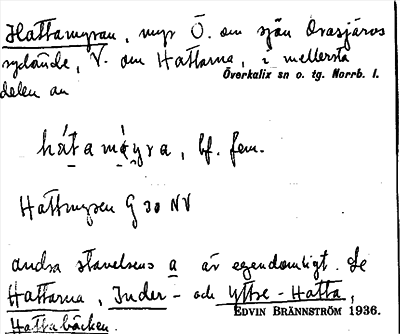 Hattamyran, myr Ö. om sjön Orasjärvs
sydände, V. om Hattarna, i mellersta
Överkalix sn o. tg. Norrb. l.
delen av
hátamýra, bf. fem.
Hattmyren G 30 NV
andra stavelsens a är egendomligt. Se
Hattarna, Inder- och Yttre-Hatta,
EDVIN BRÄNNSTRÖM 1936.
Hattabäcken.